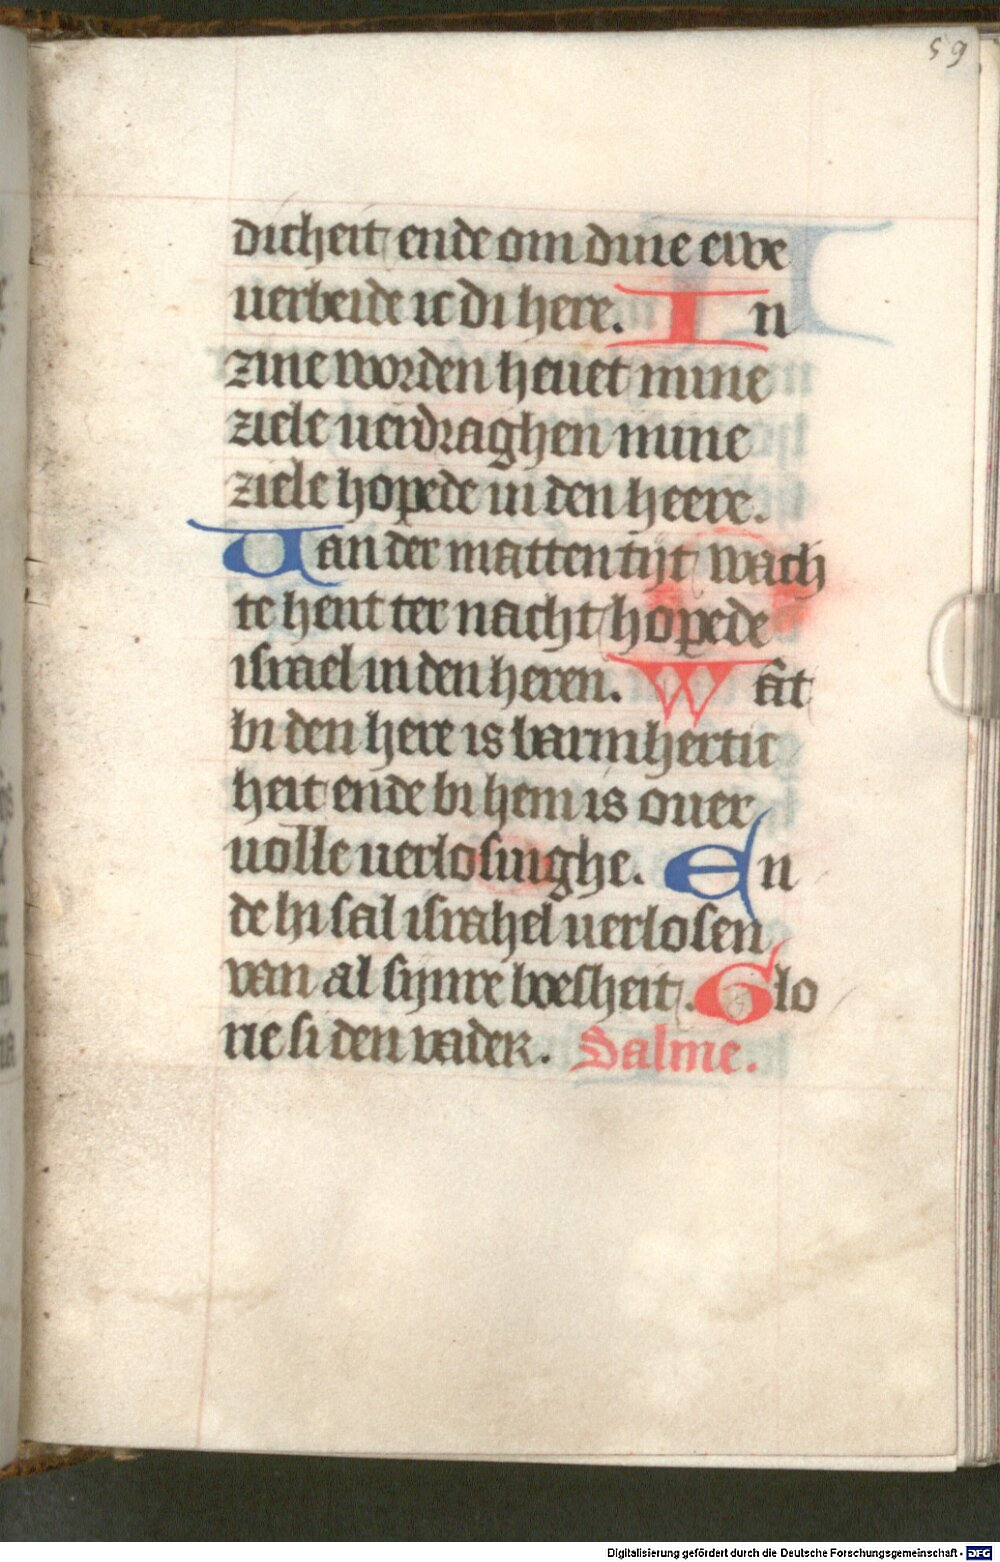 59
dicheit ende om dine ewe
uerbeide ic di here. In
zine worden heuet mine
ziele uerdraghen mine
ziele hopede in den heere.
Uan der matten tijt wach
te hent ter nacht hopede
israel in den heren. Wāt
bi den here is barmhertic
heit ende bi hem is ouer
uolle uerlosinghe. En
de hi sal israhel uerlosen
van al sijnre boesheit. Glo
rie si den vader. Salme.
Digitalisierung gefördert durch die Deutsche Forschungsgemeinschaft - DFG